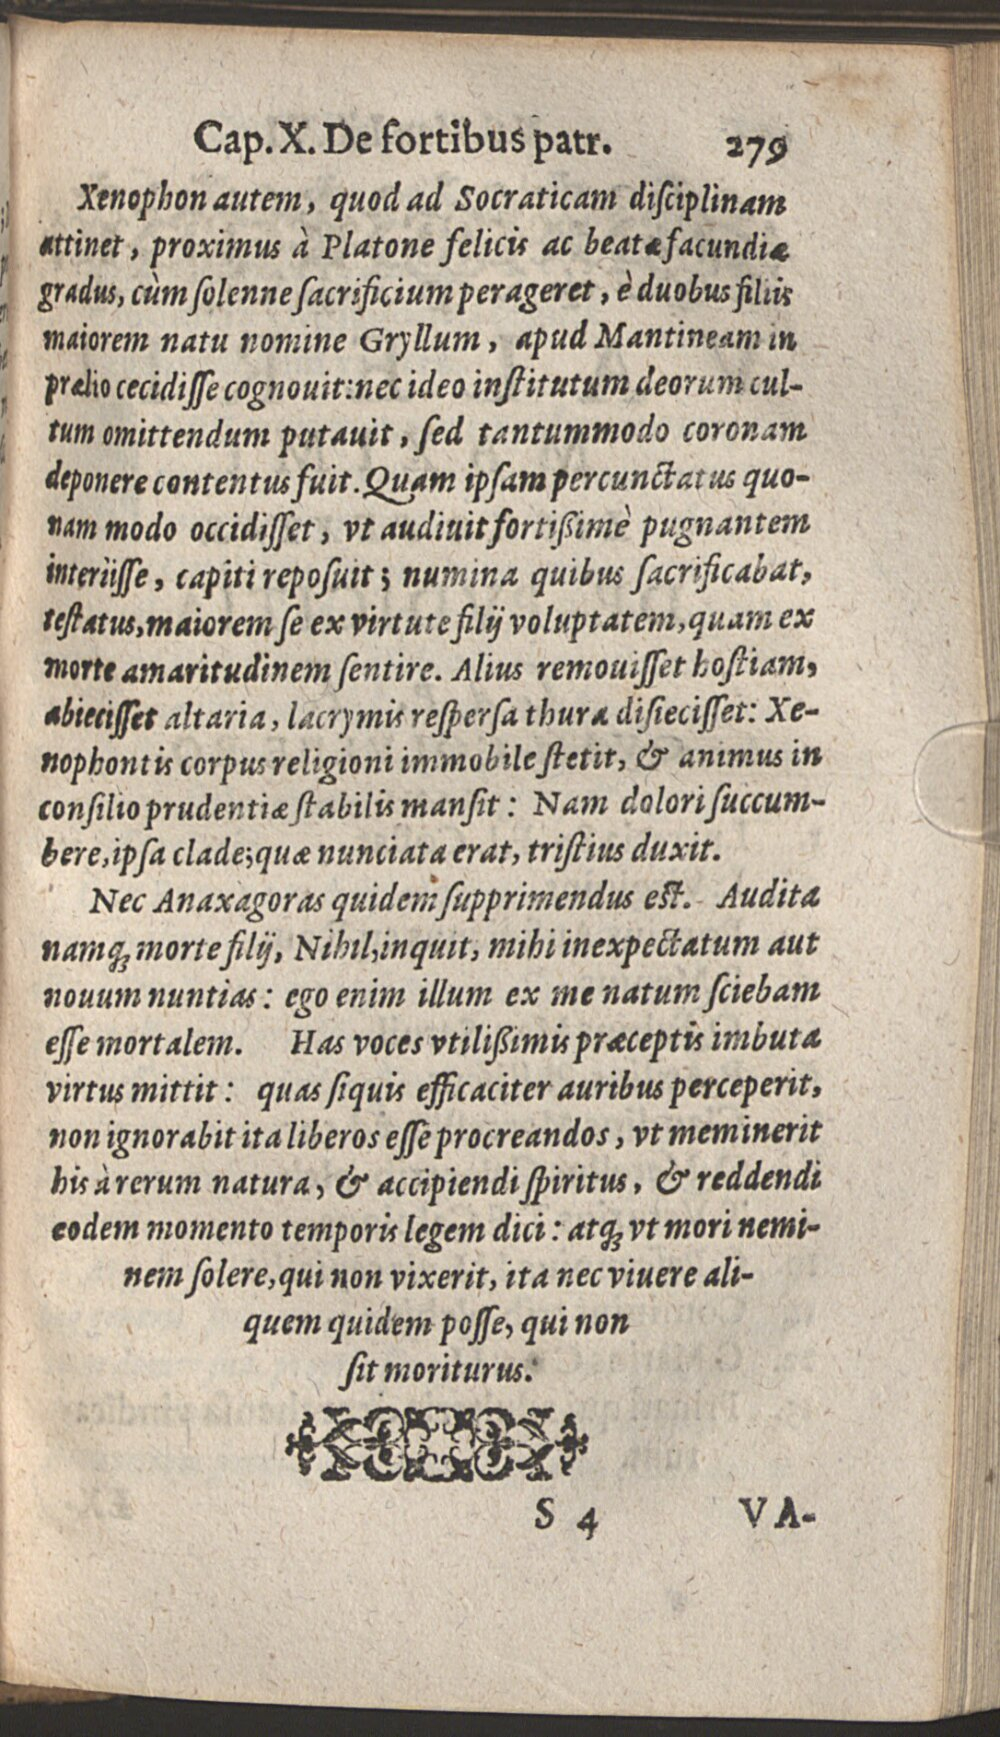 Cap. X. De fortibus patr. 279
Xenophon autem, quod ad Socraticam diſciplinam
attinet, proximus à Platone felicis ac beatæ facundiæ
gradus, cùm ſolenne ſacrificium perageret, è duobus filiis
maiorem natu nomine Gryllum, apud Mantineam in
prælio cecidiſſe cognouit: nec ideo inſtitutum deorum cul-
tum omittendum putauit, ſed tantummodo coronam
deponere contentus fuit. Quam ipſam percunctatus quo-
nam modo occidiſſet, vt audiuit fortißimè pugnantem
interiiſſe, capiti repoſuit; numina quibus ſacrificabat,
teſtatus, maiorem ſe ex virtute filij voluptatem, quam ex
morte amaritudinem ſentire. Alius remouiſſet hoſtiam,
abieciſſet altaria, lacrymis reſperſa thura diſieciſſet: Xe-
nophontis corpus religioni immobile ſtetit, & animus in
conſilio prudentiæ ſtabilis manſit: Nam dolori ſuccum-
bere, ipſa clade; quæ nunciata erat, triſtius duxit.
Nec Anaxagoras quidem ſupprimendus eſt. Audita
namq; morte filij, Nihil, inquit, mihi inexpectatum aut
nouum nuntias: ego enim illum ex me natum ſciebam
eſſe mortalem. Has voces vtilißimis præceptis imbuta
virtus mittit: quas ſiquis efficaciter auribus perceperit,
non ignorabit ita liberos eſſe procreandos, vt meminerit
his à rerum natura, & accipiendi ſpiritus, & reddendi
eodem momento temporis legem dici: atq; vt mori nemi-
nem ſolere, qui non vixerit, ita nec viuere ali-
quem quidem poſſe, qui non
ſit moriturus.
S 4 VA-